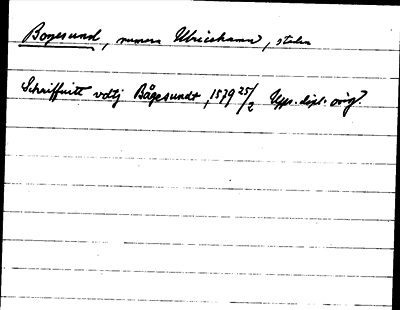 Bogesund, numera Ulricehamn, staden
Schriffuitt vdtj Bågesundt, 1579 25/2 Upps. dipl. orig.